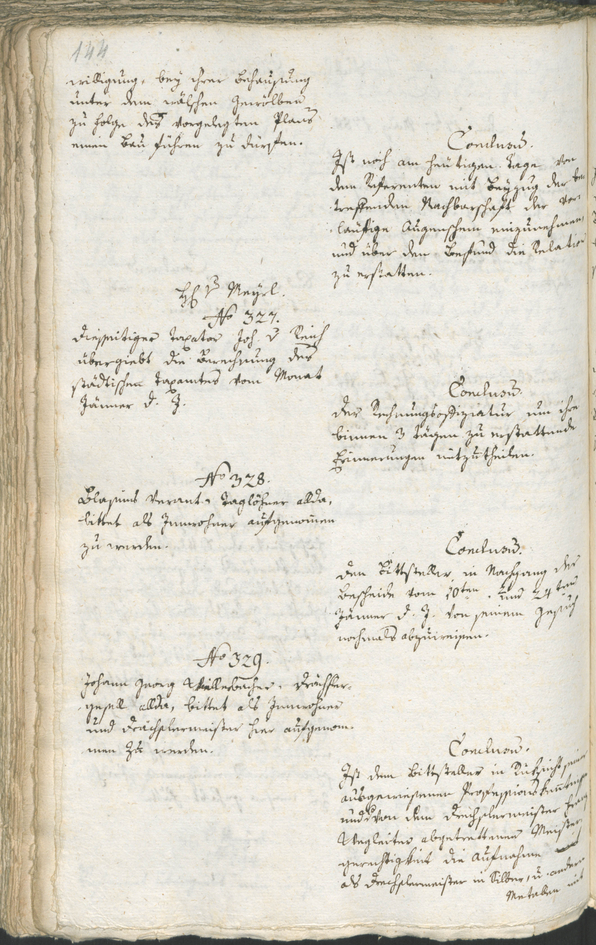 144
willigung, bey ihrer Behausung
unter den wälschen Gewölben
zu folge des vorgelegten Plans
einen Bau führen zu dürfen.
Conclusū.
Ist noch am heutigen Tage von
dem Referenten mit Beyzug der be¬
treffenden Nachbarschaft der vor¬
läufige Augenschein einzunehmen
und über den Befund die Relation
zu erstatten.
H v Meyrl.
No 327.
Diesseitiger Taxator Joh. v Reich
übergiebt die Berechnung des
städtischen Taxamtes vom Monat
Jänner d. J.
Conclusū.
Der Rechnungsoffiziatur um ihre
binnen 3 Tägen zu erstattende
Erinnerungen mitzutheilen.
No 328.
Blasius Verant, Taglöhner allda,
bittet als Innwohner aufgenomen
zu werden.
Conclusū.
Den Bittsteller in Nachgang der
Bescheide vom 10ten und 24ten
Jänner d. J. von seinem Gesuch
nochmals abzuweisen.
No 329.
Johann Georg Drächsler¬
gesell allda, bittet als Innwohner
und Drächslermeister hier aufgenom¬
men zu werden.
Conclusū.
Ist dem Bittsteller in Rücksicht seiner
ausgewiesenen Professions
und von dem Drechslermeister
Wegleiter abgetrettenen Meister
gerechtigkeit die Aufnahme
als Drechslermeister in Silber, u. andern
Metallen mit